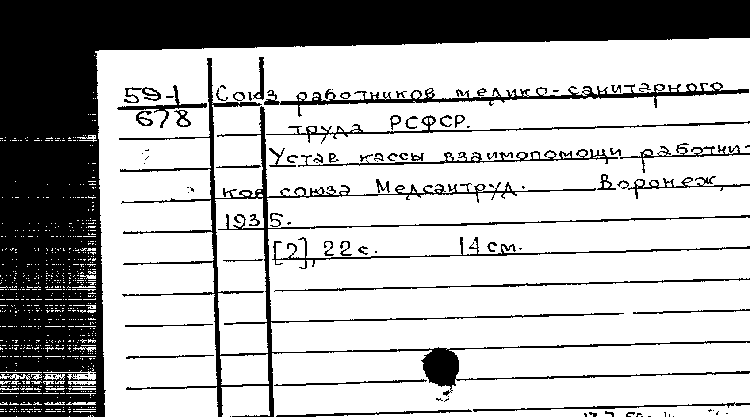 59-1 Союз работников медико-санитарного
678 труда РСФСР.
Устав кассы взаимопомощи работни-
ков союза Медсантруд. Воронеж,
1935.
[2], 22 с. 14 см.